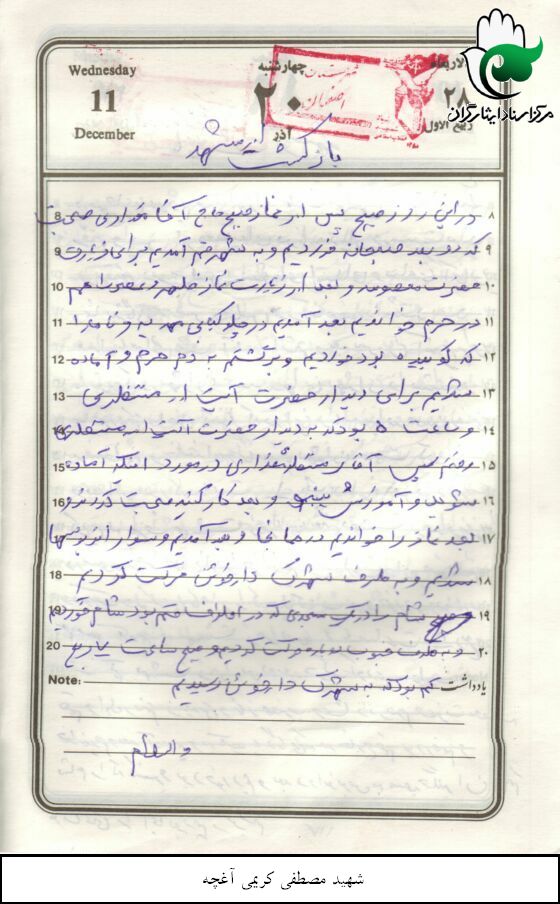 Wednesday
11
December
چهارشنبه
۲۰
آذر
الاربعاء
۲۸
ربیع الاول
مرکز اسناد ایثارگران
بازگشت از مشهد
8 در این روز صبح پس از نماز صبح حاج آقا صحبت ۸
9 صبحانه خوردیم و به شهر قم آمدیم برای زیارت ۹
10 حضرت معصومه و بعد از زیارت نماز ظهر و عصر را هم ۱۰
11 در حرم خواندیم بعد آمدیم در چلوکبابی و ناهار ۱۱
12 که کوبیده بود خوردیم و برگشتیم به دم حرم و آماده ۱۲
13 شدیم برای دیدار حضرت آیت ا... منتظری ۱۳
14 و ساعت ۵ بود که به دیدار حضرت آیت ا... منتظری ۱۴
15 رفتیم پس آقای در مورد اینکه آماده ۱۵
16 شوید و آموزش و بعد صحبت کردند و ۱۶
17 بعد نماز را خواندیم در همانجا و بعد آمدیم و سوار اتوبوسها ۱۷
18 شدیم و به طرف شهرک دارخوین حرکت کردیم ۱۸
19 شام را در یک مسجدی که در اطراف قم بود شام خوردیم ۱۹
20 و به طرف جنوب دوباره حرکت کردیم و صبح ساعت ۲۰
Note: کم بود که به شهرک دارخوین رسیدیم یادداشت
والسلام
شهید مصطفی کریمی آغچه